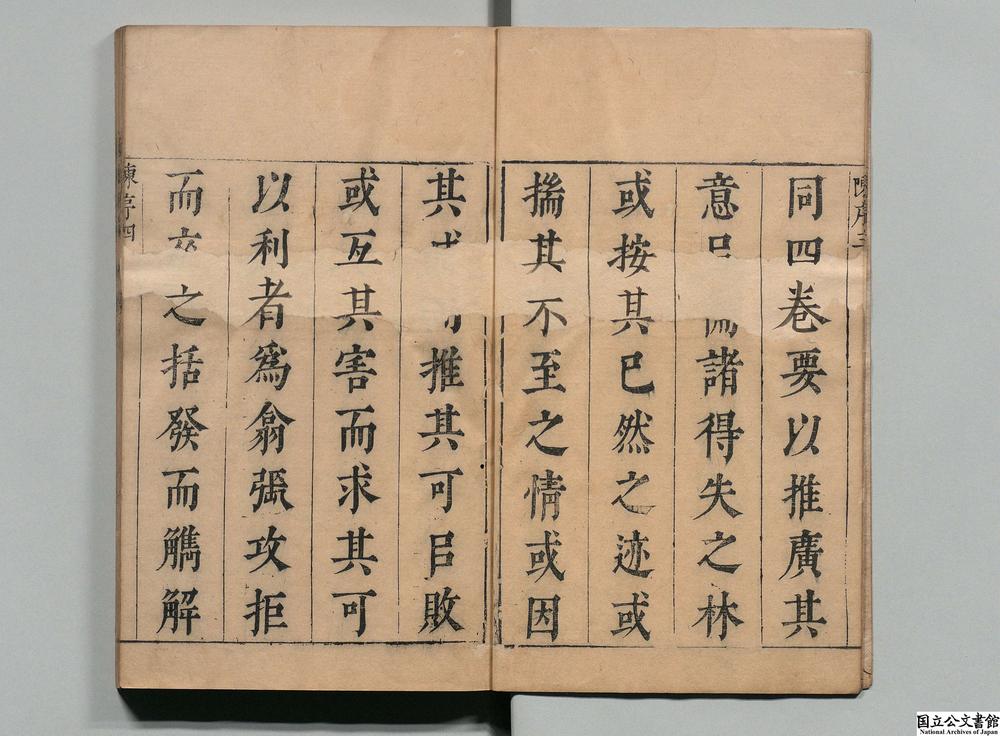 陳序三
同四卷要以推廣其
意諸得失之林
或按其已然之迹或
揣其不至之情或因
其推其可㠯敗
或互其害而求其可
以利者爲翕張攻拒
而之括發而觿解
陳序四
国立公文書館
National Archives of Japan